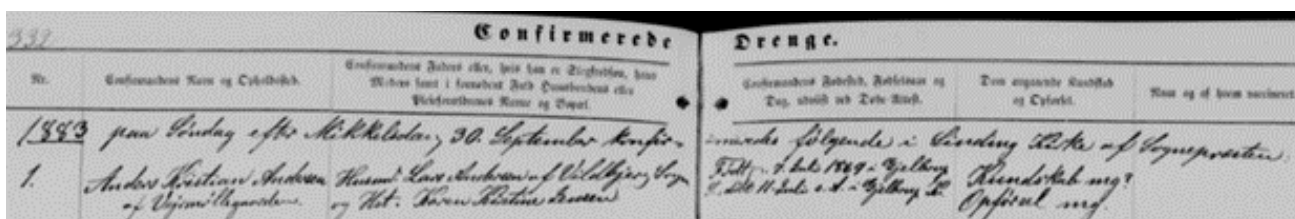 332
Confirmerede Drenge.
Nr.
Confirmandens Navn og Opholdssted.
Confirmandens Faders eller, hvis han er Stegfredsøn, hans
Moders samt i fornødent Fald Huusbondens eller
Pleieforældrenes Navne og Bopæl.
Confirmandens Fødested, Fødselsaar og
Dag, udviist ved Døbe-Attest.
Dom angaaende Kundskab
og Opførsel.
Naar og af hvem vaccineret.
1883 paa Søndag efter Mikkelsdag, 30. September konfir-
merede følgende i Sinding Kirke af Sognepræsten.
1.
Anders Kristian Andersen
af Vejsmøllegaarden
Husm. Lars Andersen af Vildbjerg Sogn
og Hst. Karen Kristine Jensen
Født 7. Juli 1869 i
11 Juli s. A. i
Kundskab mg?
Opførsel mg.